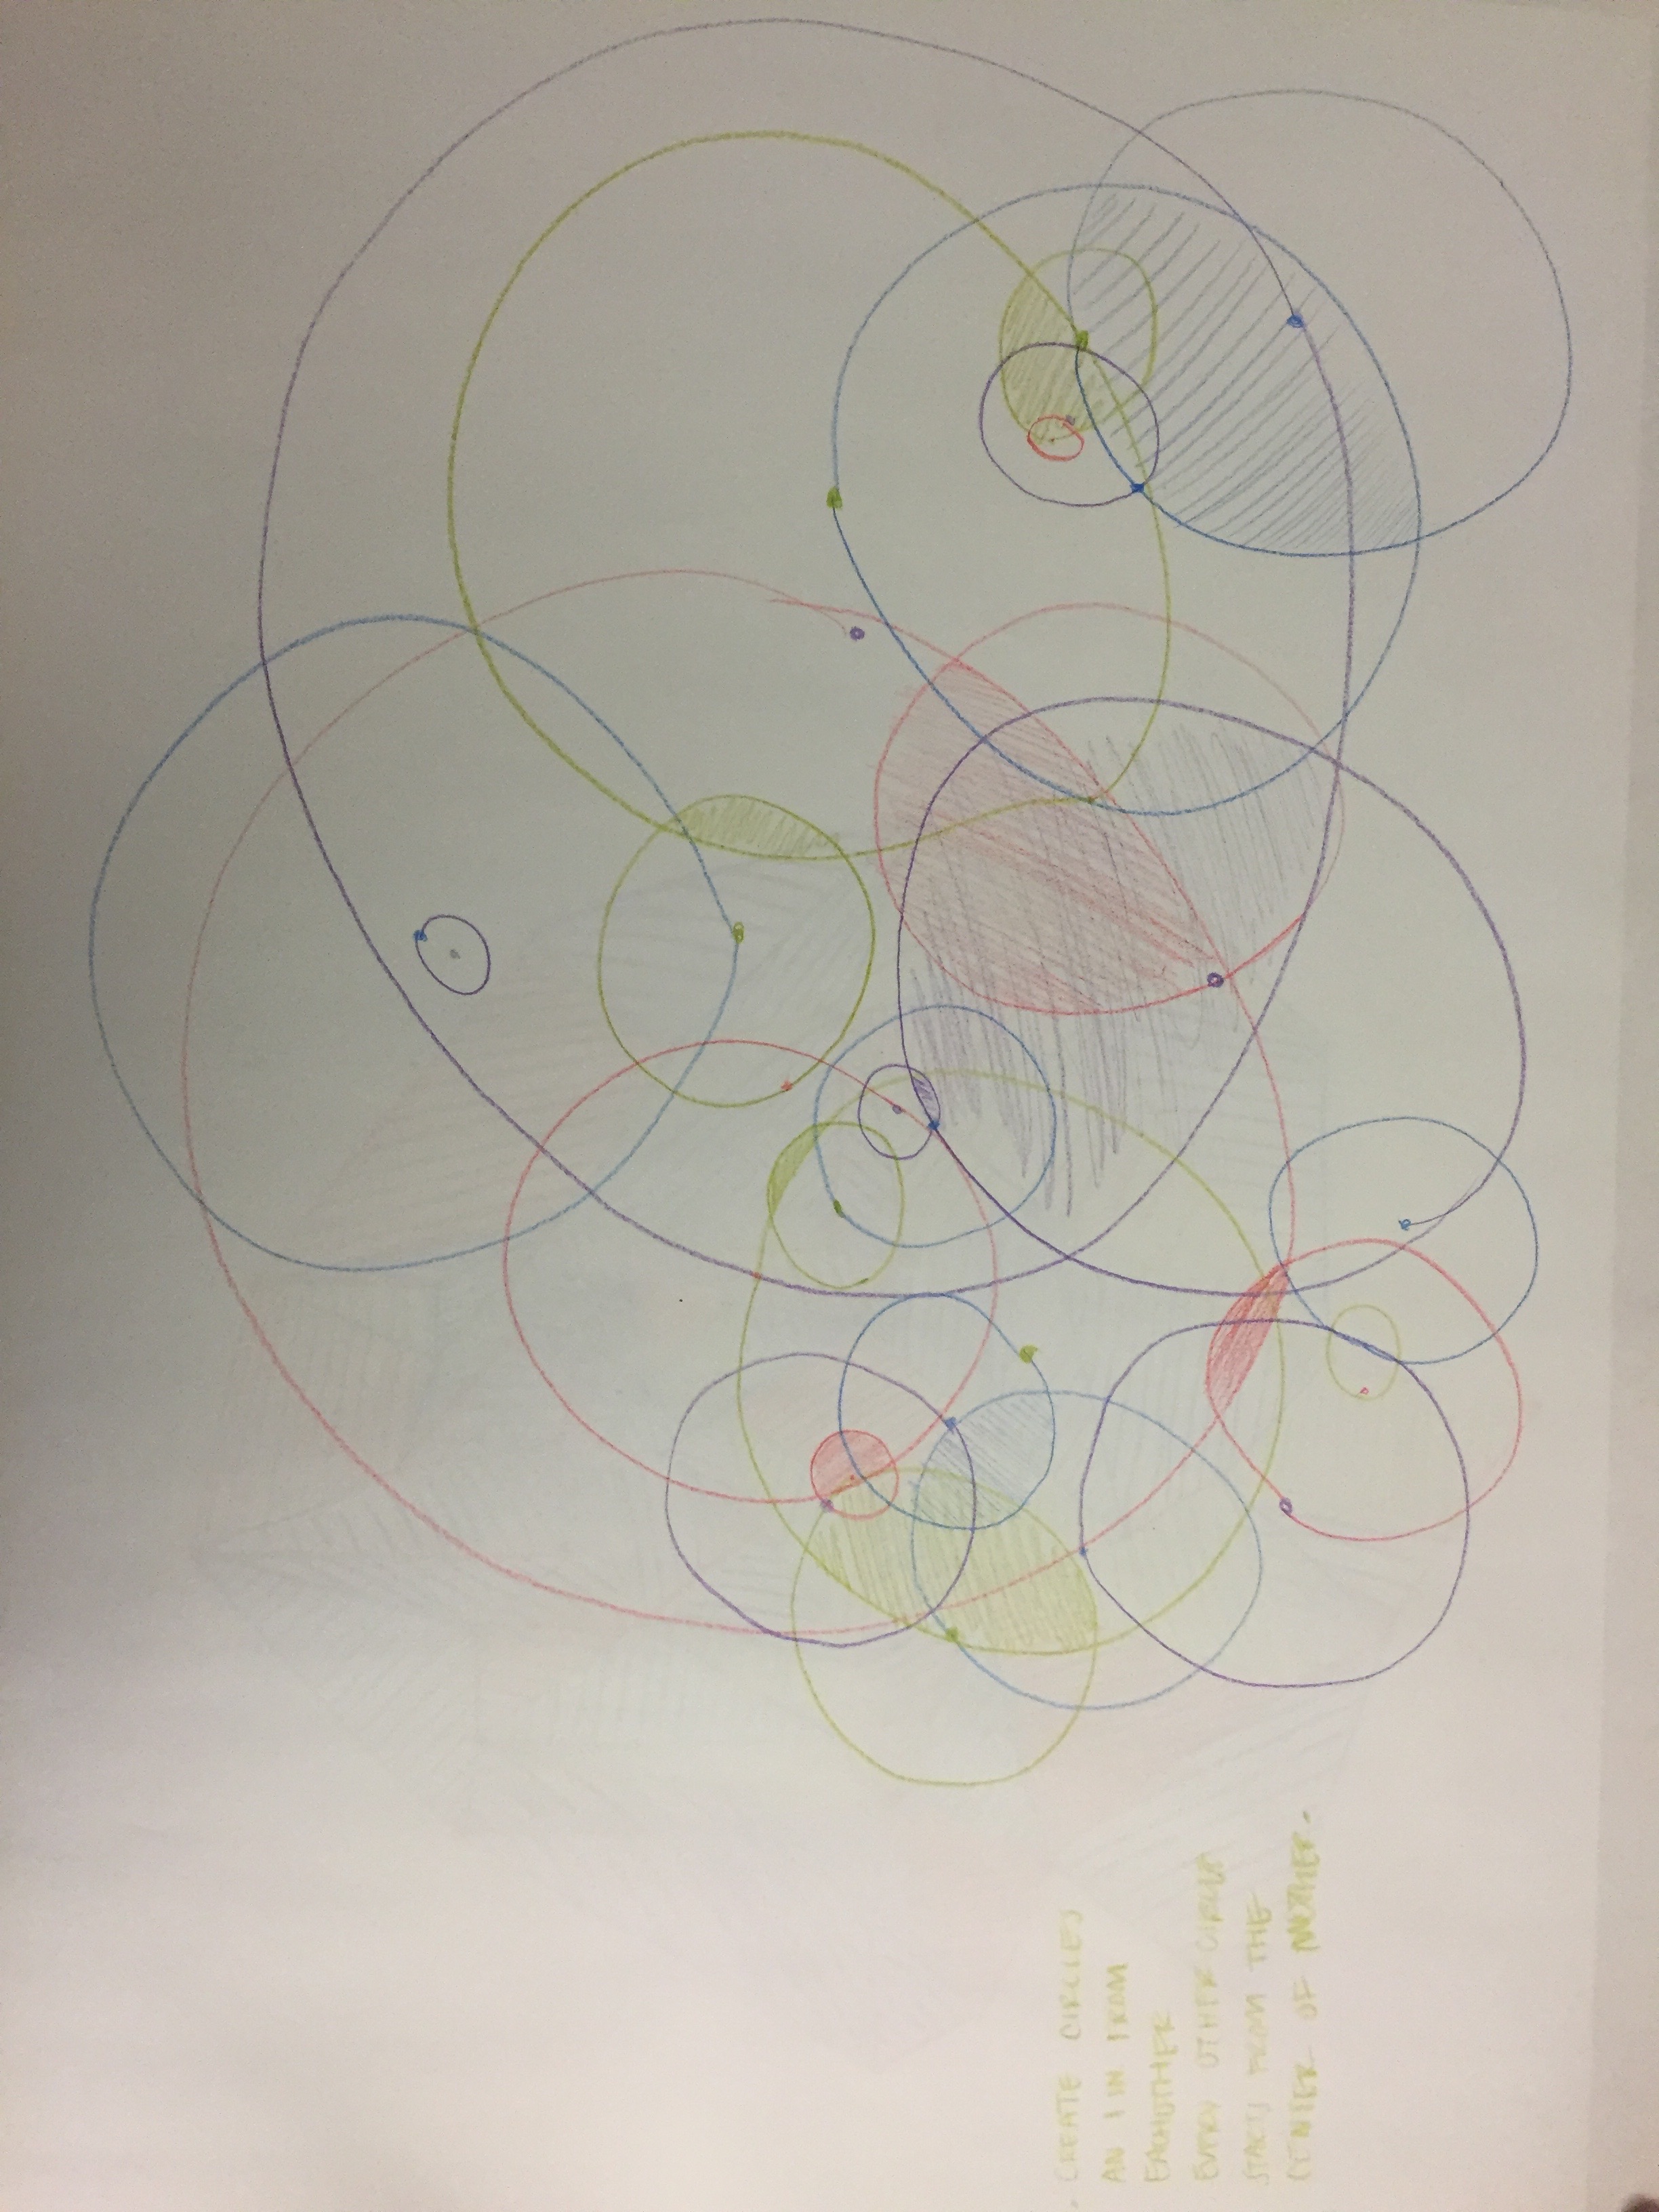 . CREATE CIRCLES
AN 1 IN FROM
EACHOTHER
EVERY OTHER CIRCLE
STARTS FROM THE
CENTER OF ANOTHER.